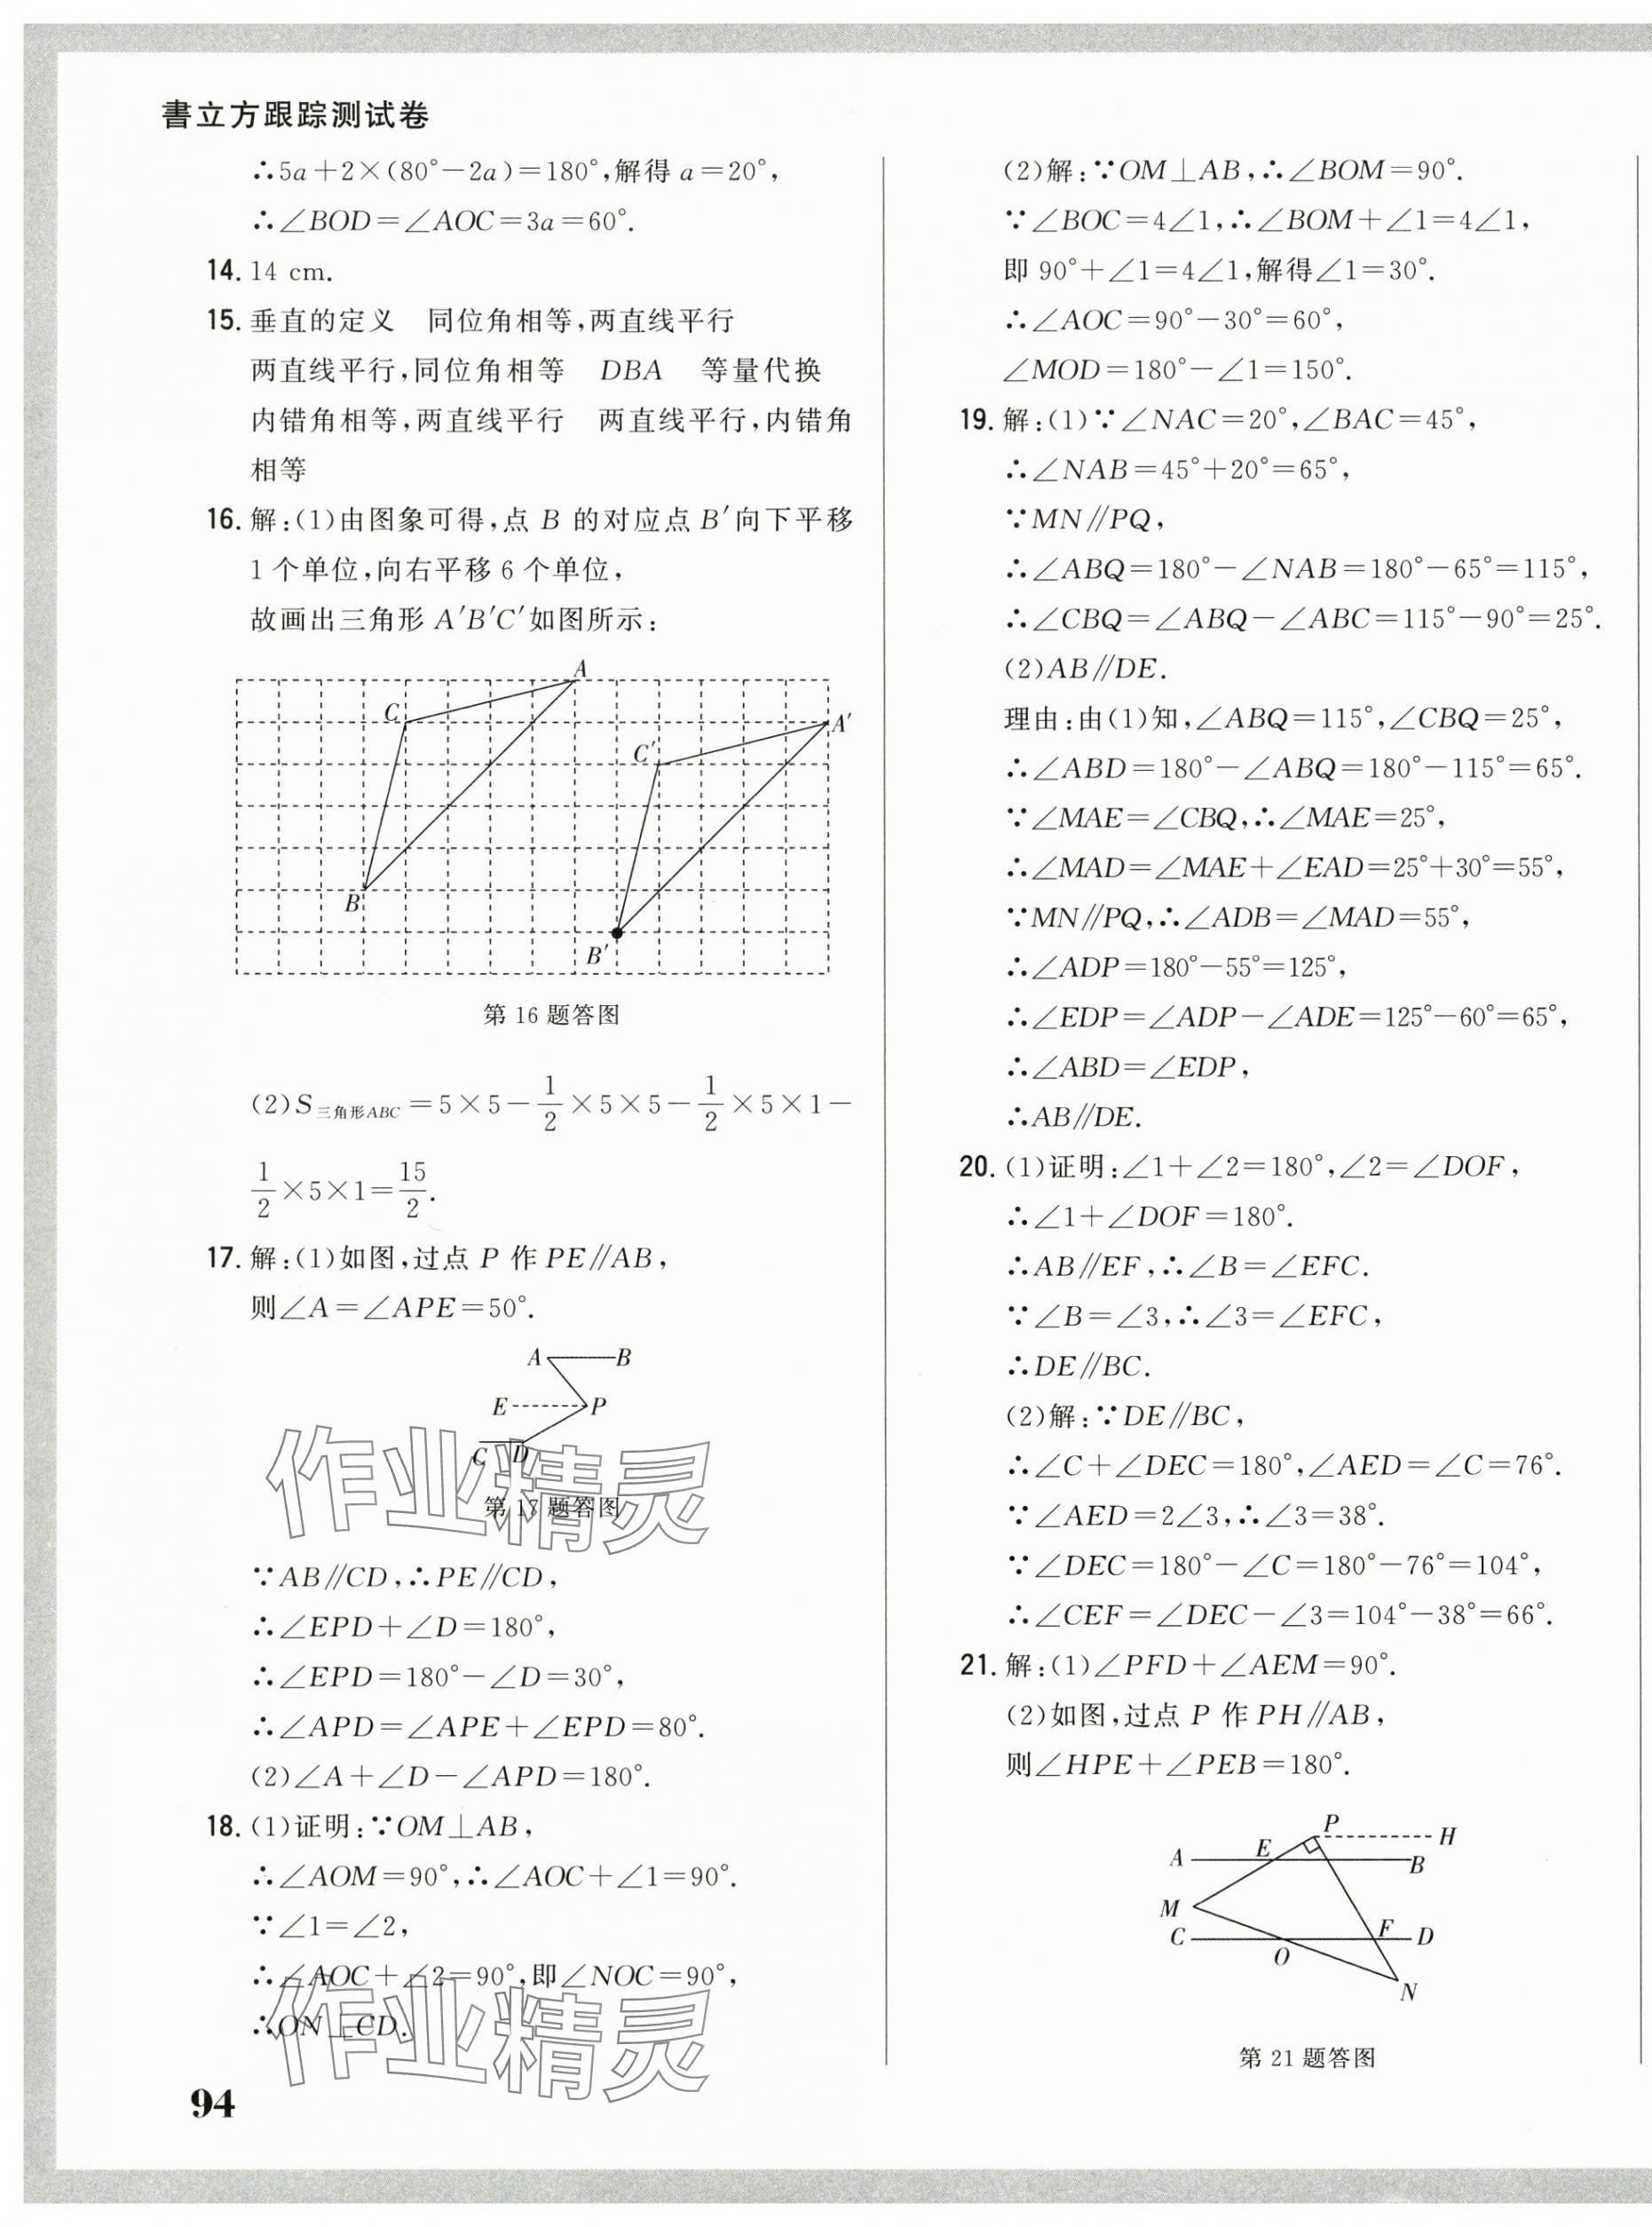 書立方跟踪测试卷
∴5a+2×(80°-2a)=180°,解得 a=20°,
∴∠BOD=∠AOC=3a=60°.
14. 14 cm.
15. 垂直的定义 同位角相等,两直线平行
两直线平行,同位角相等 DBA 等量代换
内错角相等,两直线平行 两直线平行,内错角
相等
16. 解:(1)由图象可得,点 B 的对应点 B′向下平移
1 个单位,向右平移 6 个单位,
故画出三角形 A′B′C′如图所示:
A
C
A′
C′
B
B′
第 16 题答图
(2)S三角形ABC=5×5-1/2×5×5-1/2×5×1-
1/2×5×1=15/2.
17. 解:(1)如图,过点 P 作 PE∥AB,
则∠A=∠APE=50°.
A B
E P
C D
第 17 题答图
∵AB∥CD,∴PE∥CD,
∴∠EPD+∠D=180°,
∴∠EPD=180°-∠D=30°,
∴∠APD=∠APE+∠EPD=80°.
(2)∠A+∠D-∠APD=180°.
18. (1)证明:∵OM⊥AB,
∴∠AOM=90°,∴∠AOC+∠1=90°.
∵∠1=∠2,
∴∠AOC+∠2=90°,即∠NOC=90°,
∴ON⊥CD.
作业精灵
作业精灵
94
(2)解:∵OM⊥AB,∴∠BOM=90°.
∵∠BOC=4∠1,∴∠BOM+∠1=4∠1,
即 90°+∠1=4∠1,解得∠1=30°.
∴∠AOC=90°-30°=60°,
∠MOD=180°-∠1=150°.
19. 解:(1)∵∠NAC=20°,∠BAC=45°,
∴∠NAB=45°+20°=65°,
∵MN∥PQ,
∴∠ABQ=180°-∠NAB=180°-65°=115°,
∴∠CBQ=∠ABQ-∠ABC=115°-90°=25°.
(2)AB∥DE.
理由:由(1)知,∠ABQ=115°,∠CBQ=25°,
∴∠ABD=180°-∠ABQ=180°-115°=65°.
∵∠MAE=∠CBQ,∴∠MAE=25°,
∴∠MAD=∠MAE+∠EAD=25°+30°=55°,
∵MN∥PQ,∴∠ADB=∠MAD=55°,
∴∠ADP=180°-55°=125°,
∴∠EDP=∠ADP-∠ADE=125°-60°=65°,
∴∠ABD=∠EDP,
∴AB∥DE.
20. (1)证明:∠1+∠2=180°,∠2=∠DOF,
∴∠1+∠DOF=180°.
∴AB∥EF,∴∠B=∠EFC.
∵∠B=∠3,∴∠3=∠EFC,
∴DE∥BC.
(2)解:∵DE∥BC,
∴∠C+∠DEC=180°,∠AED=∠C=76°.
∵∠AED=2∠3,∴∠3=38°.
∵∠DEC=180°-∠C=180°-76°=104°,
∴∠CEF=∠DEC-∠3=104°-38°=66°.
21. 解:(1)∠PFD+∠AEM=90°.
(2)如图,过点 P 作 PH∥AB,
则∠HPE+∠PEB=180°.
P H
A E B
M
C O F D
N
第 21 题答图